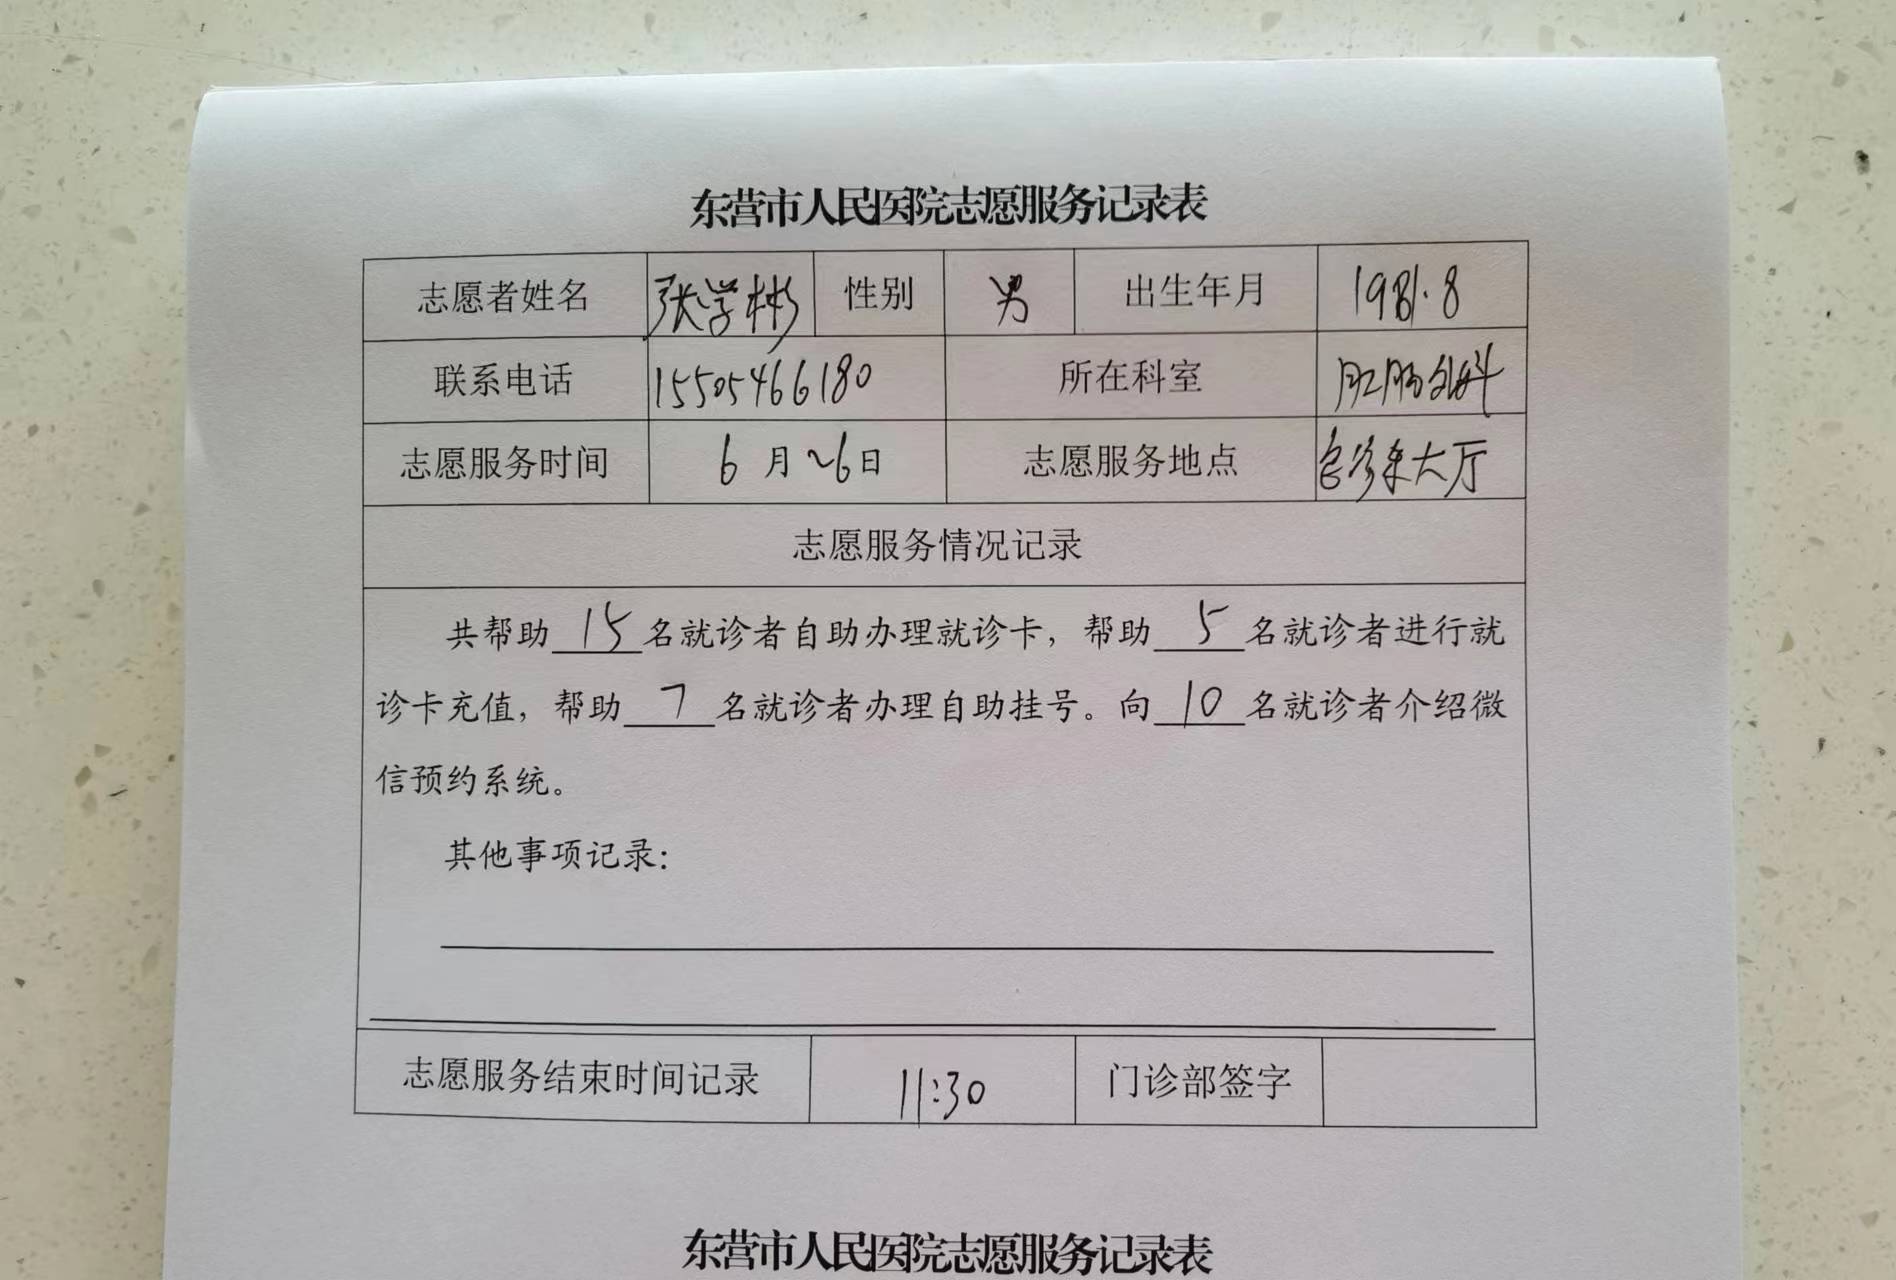 东营市人民医院志愿服务记录表
志愿者姓名 张学彬 性别 男 出生年月 1981.8
联系电话 15505466180 所在科室 肛肠外科
志愿服务时间 6 月 26 日 志愿服务地点 大厅
志愿服务情况记录
共帮助 15 名就诊者自助办理就诊卡，帮助 5 名就诊者进行就
诊卡充值，帮助 7 名就诊者办理自助挂号。向 10 名就诊者介绍微
信预约系统。
其他事项记录：
志愿服务结束时间记录 11:30 门诊部签字
东营市人民医院志愿服务记录表